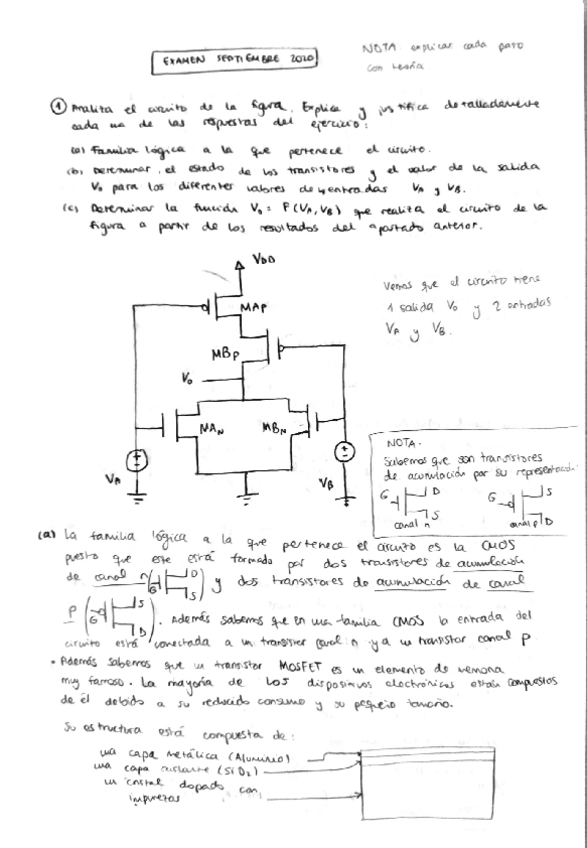 NOTA explicar cada paso
con teoría.
EXAMEN SEPTIEMBRE 2020
① Analiza el circuito de la figura. Explica y justifica detalladamente
cada una de las respuestas del ejercicio:
(a) Familia lógica a la que pertenece el circuito.
(b) Determinar, el estado de los transistores y el valor de la salida
V₀ para los diferentes valores de entradas VA y VB.
(c) Determinar la función V₀ = F(VA, VB) que realiza el circuito de la
figura a partir de los resultados del apartado anterior.
VDD
MAP
MBP
V₀
MAN
MBN
VA
VB
Vemos que el circuito tiene
1 salida V₀ y 2 entradas
VA y VB.
NOTA.
Sabemos que son transistores
de acumulación por su representación
G D S
canal n
G S D
canal p
(a) La familia lógica a la que pertenece el circuito es la CMOS
puesto que este está formado por dos transistores de acumulación
de canal n (G D S) y dos transistores de acumulación de canal
P (G S D). Además sabemos que en una familia CMOS la entrada del
circuito está conectada a un transistor canal n y a un transistor canal p
• Además sabemos que un transistor MOSFET es un elemento de memoria
muy famoso. La mayoría de los dispositivos electrónicos están compuestos
de él debido a su reducido consumo y su pequeño tamaño.
Su estructura está compuesta de:
una capa metálica (Aluminio)
una capa aislante (SiO₂)
un cristal dopado con
impurezas